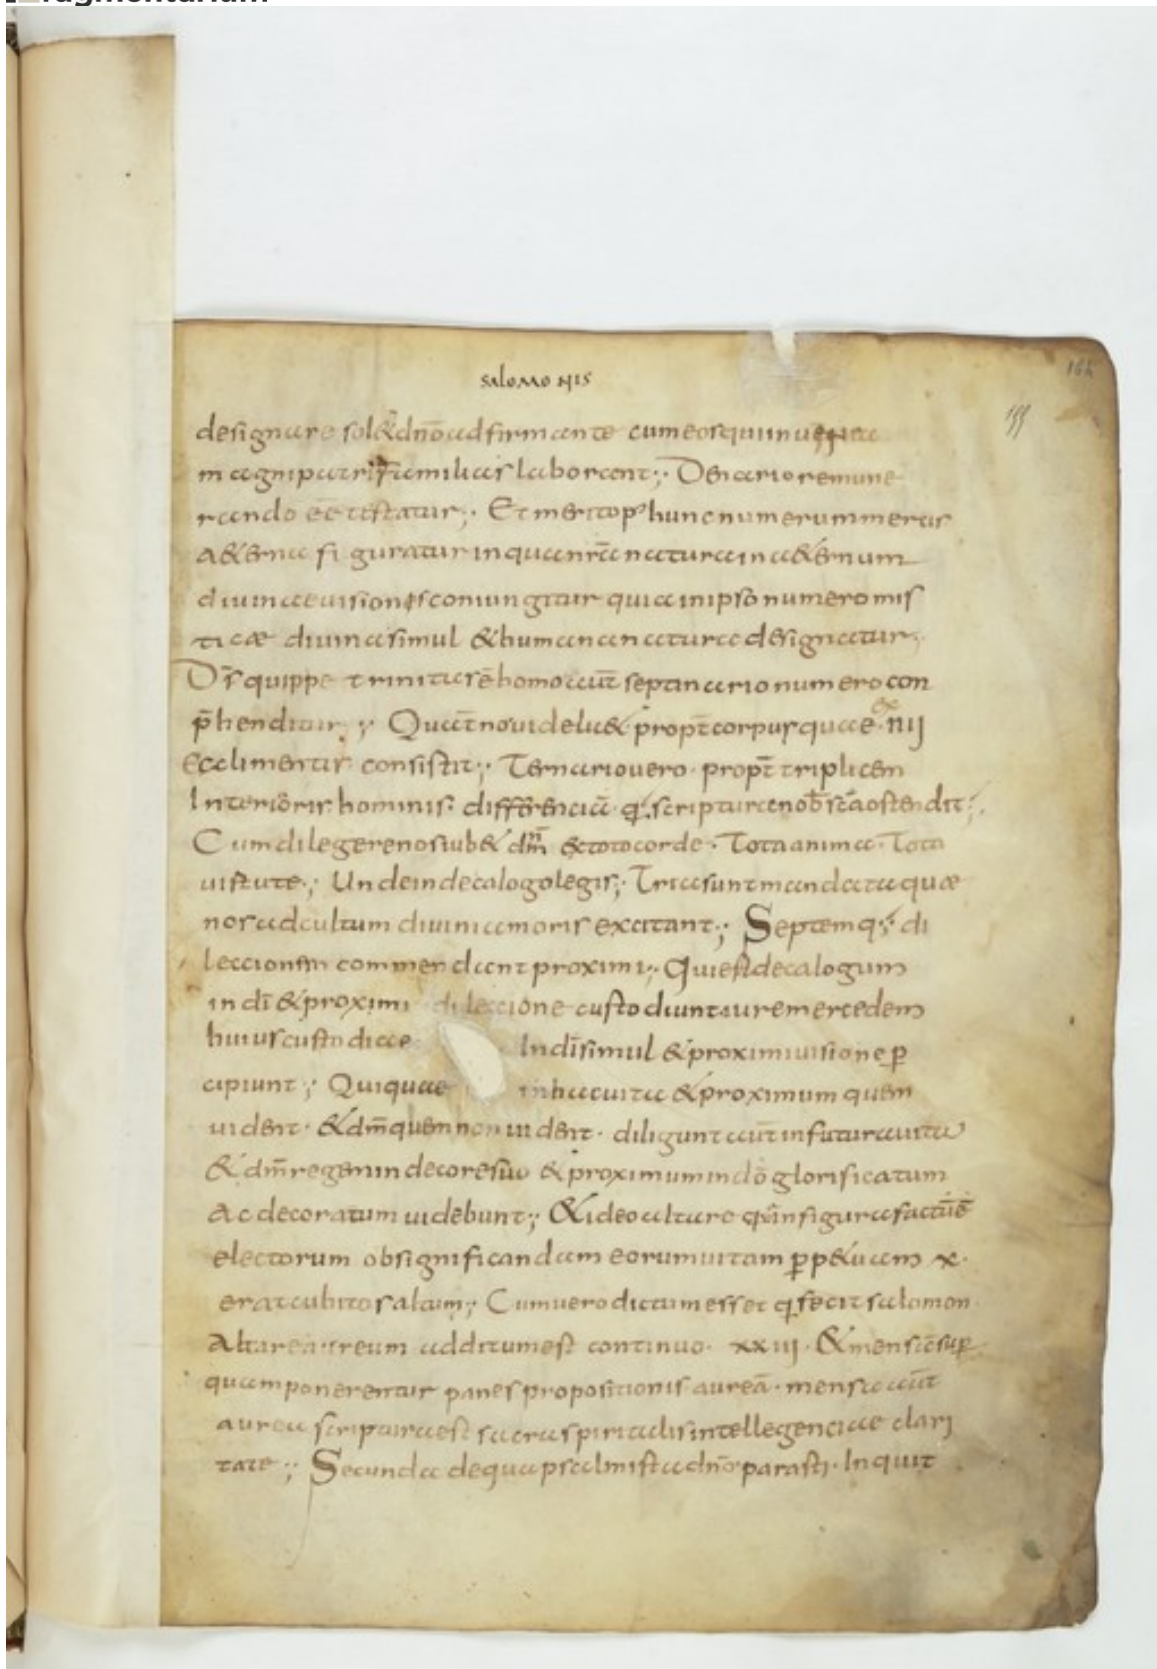 salomonis
designare sol& dnō adfirmante cum eos qui in uinea
magni patrisfamilias laborant;. Denario remune
rando eē testatur;. Et merito p hunc numerum merces
A&erna figuratur in qua nr̄a natura in a&ernum
diuinae uisionis coniungitur quia in ipso numero mis
ticæ diuina simul & humana natura designatur;.
Dr̄ quippe trinitas ē homo aūt septinario numero con
p̄henditur; Quēt nouidelic& propt̄ corpus quae ex iiij
Eaelimentis consistit;. Ternario uero propt̄ triplicem
Interioris hominis differenciā q scriptura nob̄ sc̄a ostendit;.
Cum dilegere nos iub& dm̄ ex toto corde. Tota anima. Tota
uirtute; Unde in decalogo legis; Tria sunt mandata quæ
nos ad cultum diuini amoris excitant; Septemq; di
leccionem commendant proximi;. Qui est decalogum
in dī & proximi dileccione custodiunt aure mercedem
huius custodiae In dī simul & proximi uisione p
cipiunt; Qui quae in hac uita & proximum quem
uident. & dm̄ quem non uident. diligunt aūt in futura uita
& dm̄ regem in decore suo & proximum in dō glorificatum
Ac decoratum uidebunt; & ideo altare q in figura factū ē
electorum ob significandam eorum uitam p p&uam x.
erat cubitos altum; Cum uero dictum esset q fecit salomon
Altare aureum additum est continuo. xxiij. & mensā sup
quam ponerentur panes propositionis aureā. mensa aūt
aurea scriptura est sacra spiritalis intellegenciae clari
tate; Secunda de qua psalmista dnō parasti. Inquit